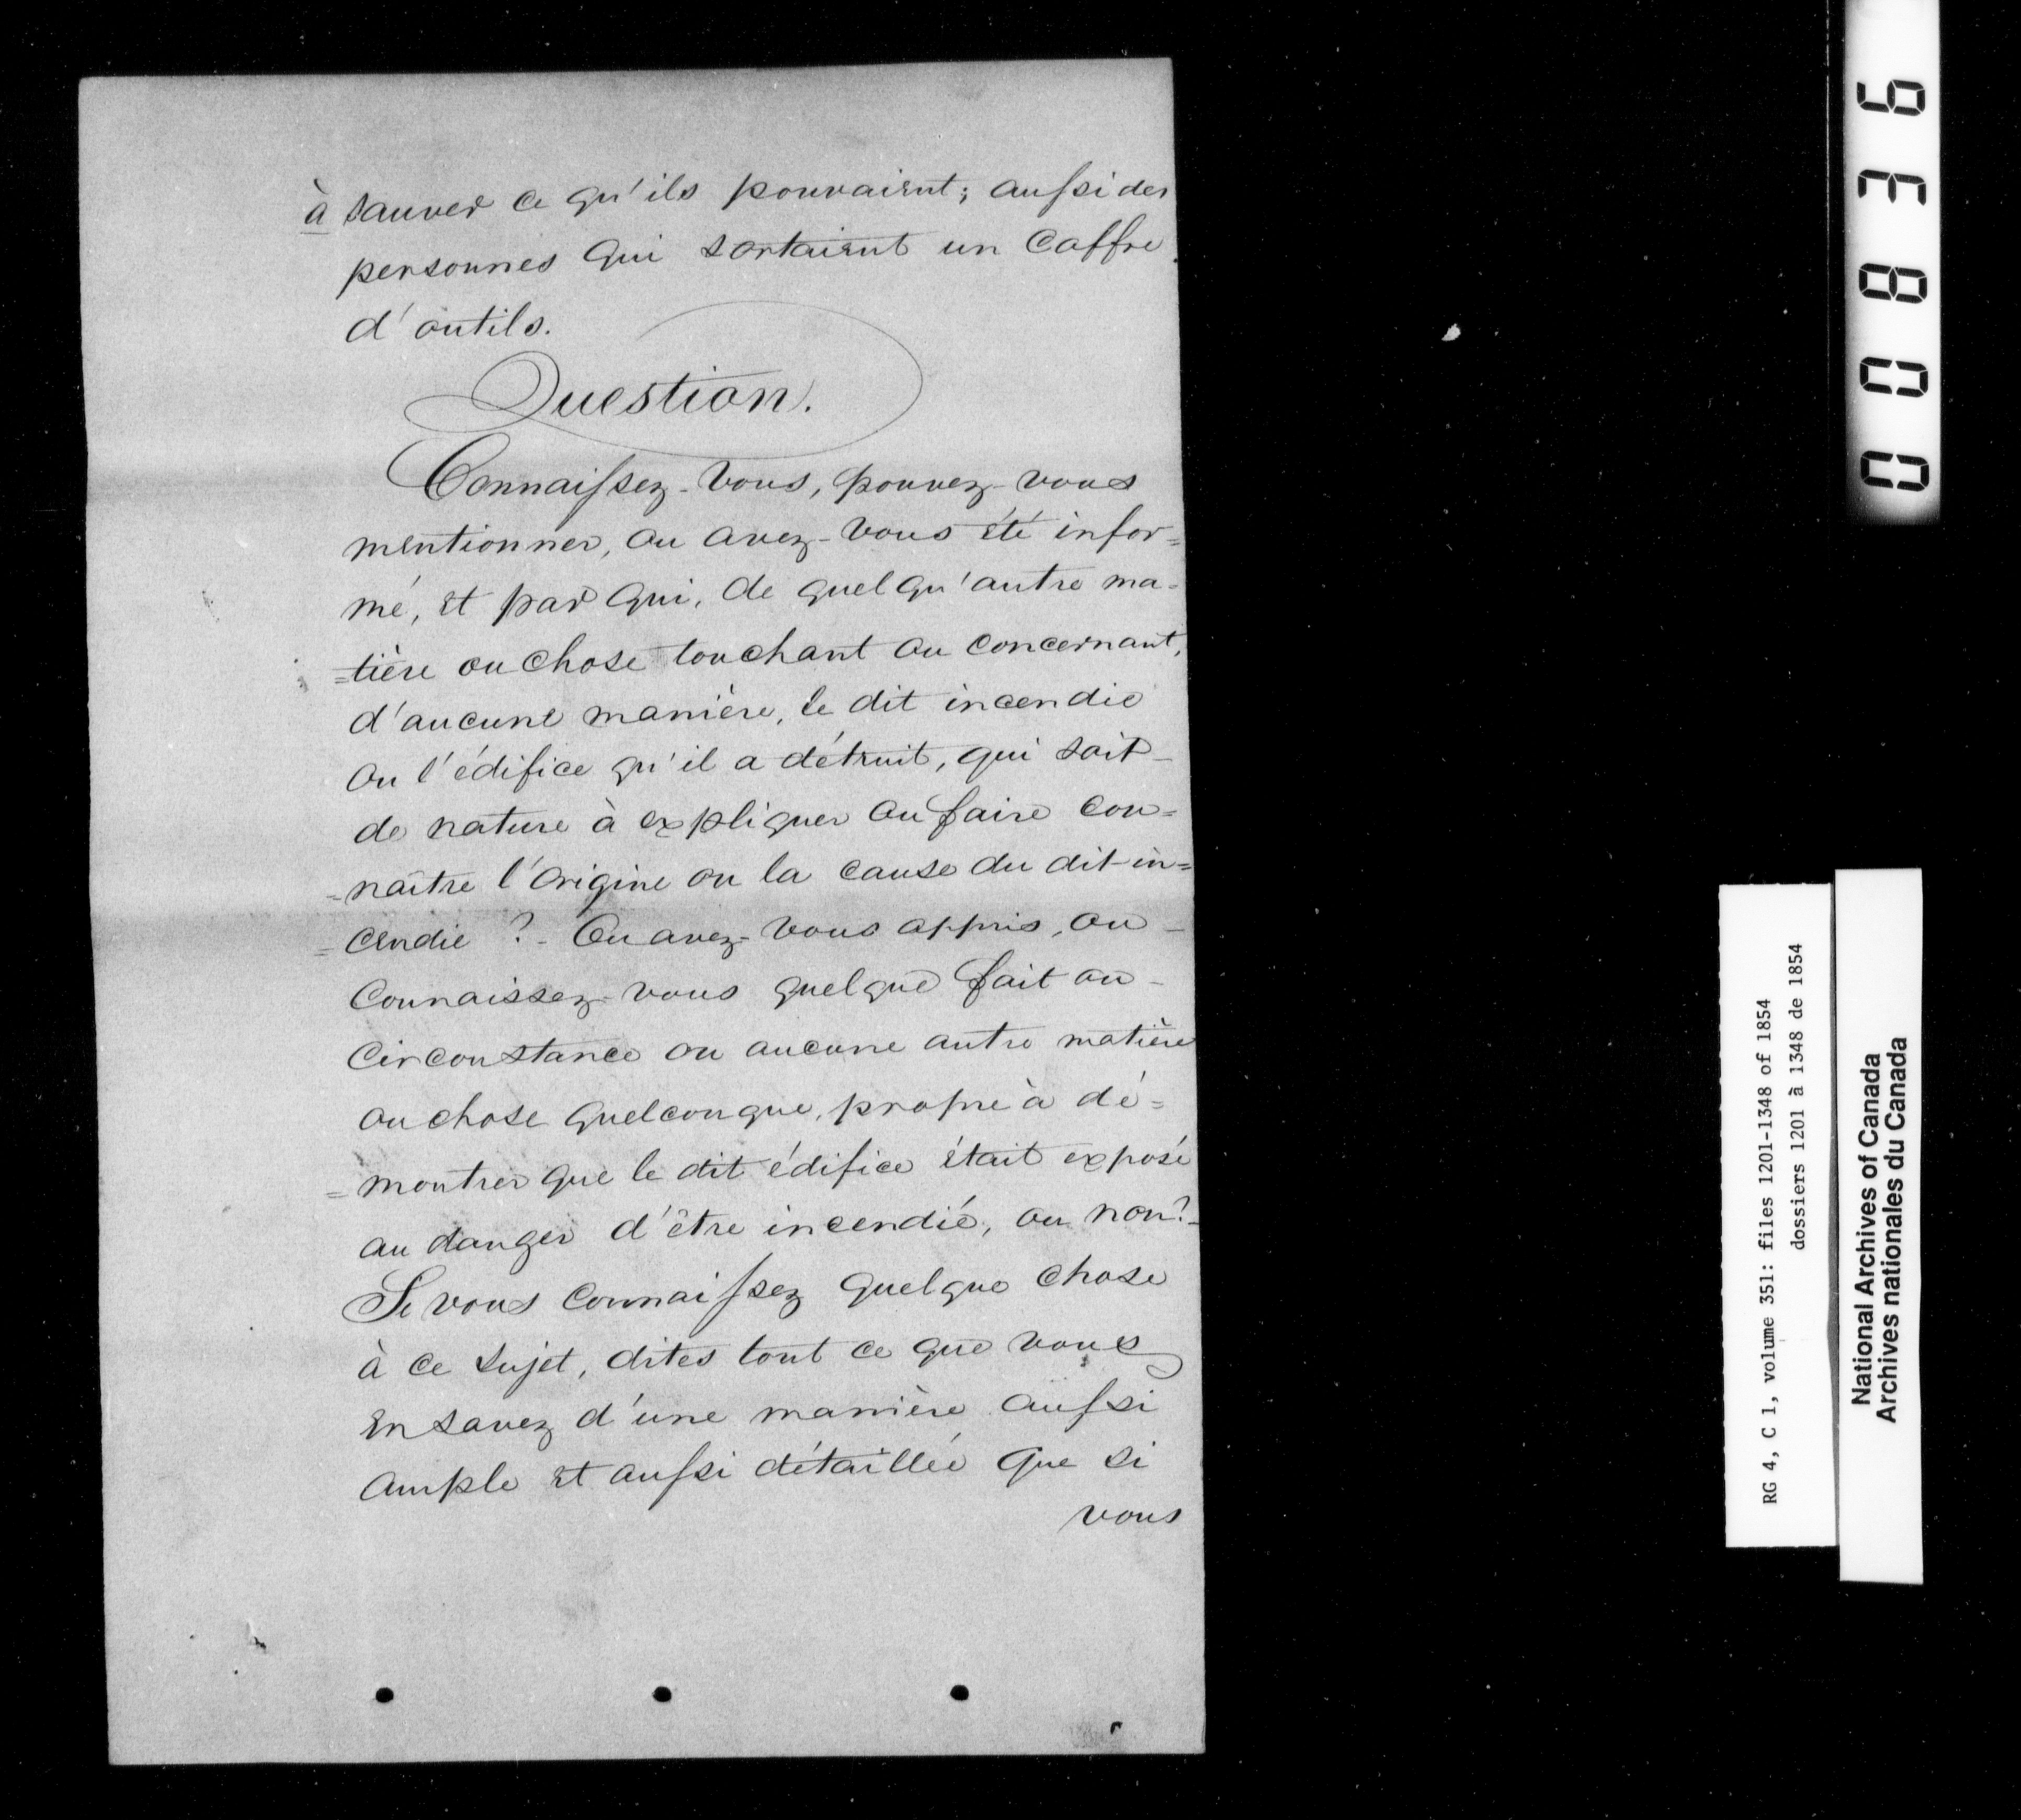 à sauver ce qu'ils pouvaient; aussi des
personnes qui sortaient un Coffre
d'outils.
Question.
Connaissez-vous, pouvez-vous
mentionner, ou avez-vous été infor=
mé, et par qui, de quelqu'autre ma-
=tière ou chose touchant ou concernant,
d'aucune manière, le dit incendie
ou l'édifice qu'il a détruit, qui soit
de nature à expliquer ou faire con=
=naître l'origine ou la cause du dit in=
=cendie ? - Ou avez-vous appris, ou
Connaissez-vous quelque fait ou
Circonstance ou aucune autre matière
ou chose quelconque, propre à dé=
=montrer que le dit édifice était exposé
au danger d'être incendié, ou non?
Si vous connaissez quelque chose
à ce sujet, dites tout ce que vous
en savez d'une manière aussi
ample et aussi détaillée que si
vous
00836
RG 4, C 1, volume 351: files 1201-1348 of 1854
dossiers 1201 à 1348 de 1854
National Archives of Canada
Archives nationales du Canada